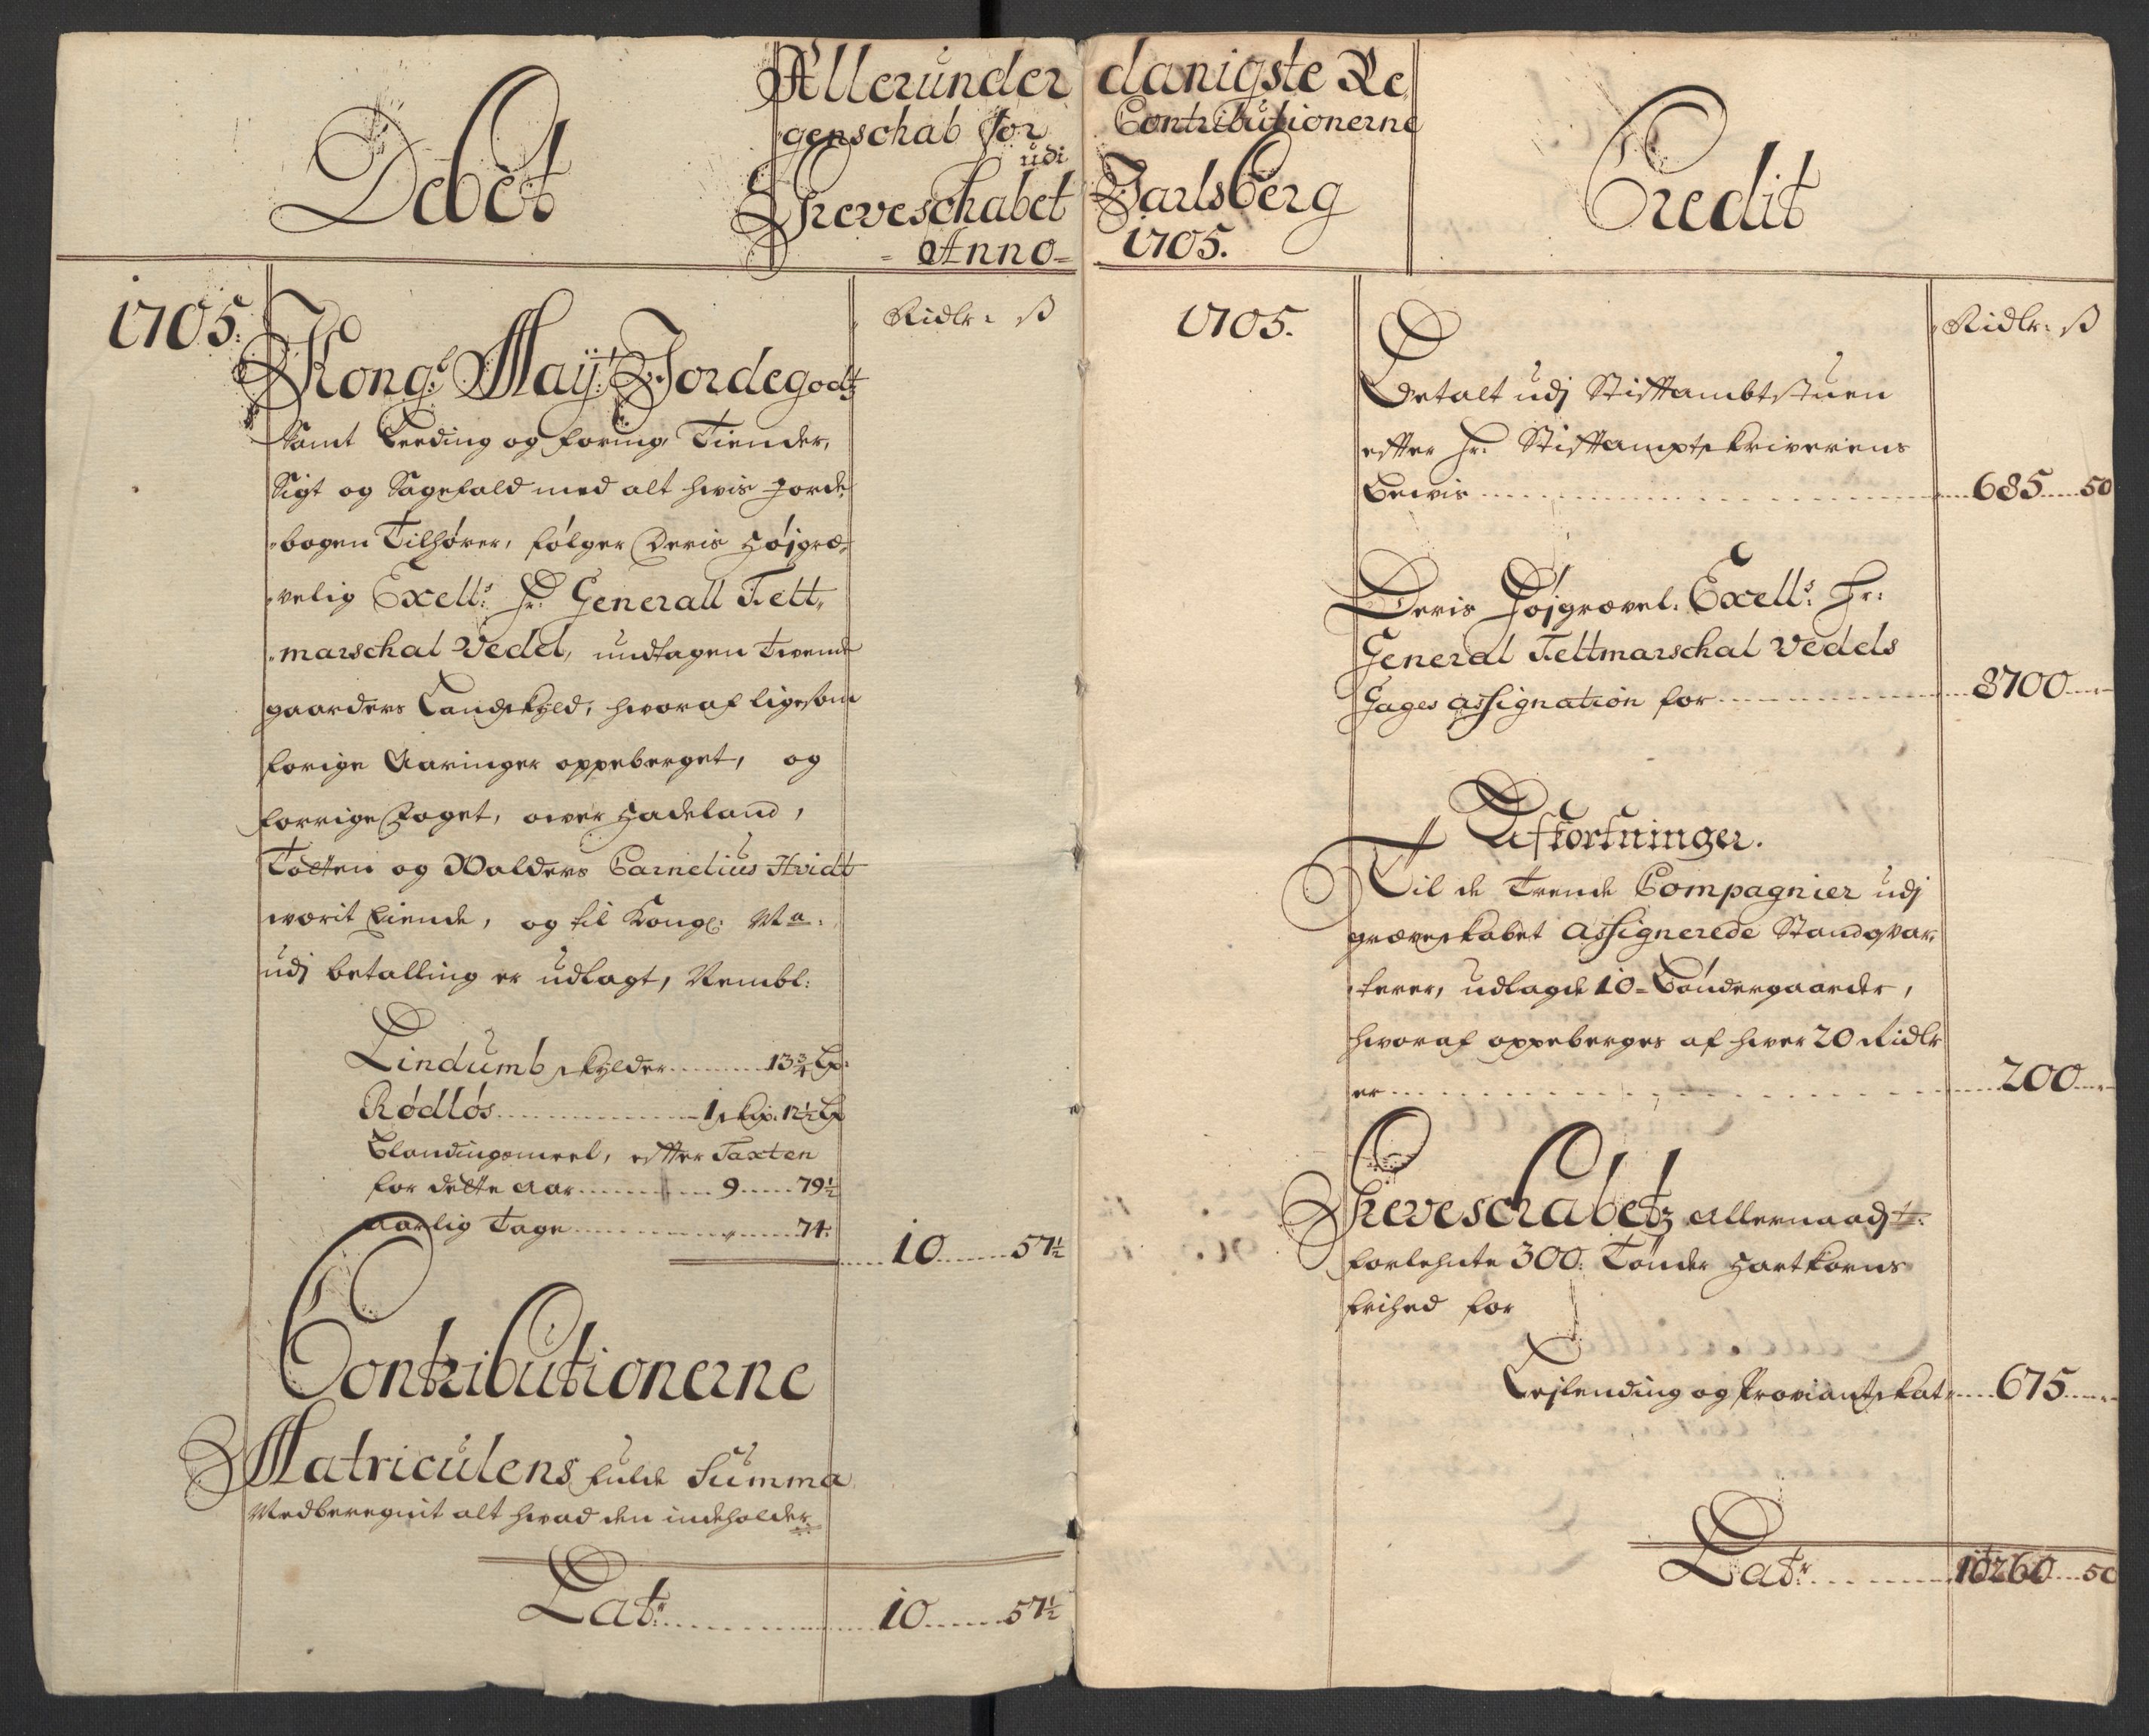 Debet
Allerunder danigste Re
genschab for Contributionerne
udi
Greveschabet Jarlsberg
Anno 1705.
Credit
1705.
Ridlr: ß
Kong: May:t Jordegodtz
Samt Leeding og foring, Tiender,
Sigt og Sagefald med alt hvis Jorde
bogen Tilhører, følger Deris Højgræ
velig Exell:s Hr: Generall Felt
marschal Vedel, undtagen Tvende
gaarders Landskyld, hvoraf ligesom
forige Aaringer oppeberget, og
forrige Foget, over Hadeland,
Totten og Walders Carnelius Hvidt
værit Eiende, og til Kongl: Ma:
udj betalling er udlagt, Nembl:
Lindumb skylder 13 3/4 Lp:
Rødløs 1 skp. 12 1/2 Lp
Blandingsmeel, effter Taxten
for dette Aar 9 79 1/2
Aarlig Tage 74.
10 57 1/2
Contributionerne
Matriculens fulde Summa
Medberegnit alt hvad den indeholder
Lat:r 10 57 1/2
1705.
Ridlr: ß
Betalt udj Stiftambtstuen
effter Hr: Stiftamptskriverens
Bevis 685 50
Deris Højgrævel: Exell:s Hr:
General Feltmarschal Vedels
Gages assignation for 8700
Affkortninger.
Til de Trende Compagnier udj
græveskabet assignerede Standqvar
terer, udlagde 10 Bøndergaarder,
hvoraf oppeberges af hver 20 Ridlr
er 200
Greveschabetz Allernaadst:
forlehnte 300: Tønder Hartkorns
frihed for
Lejlending og Proviantskat 675
Lat:r 10260 50